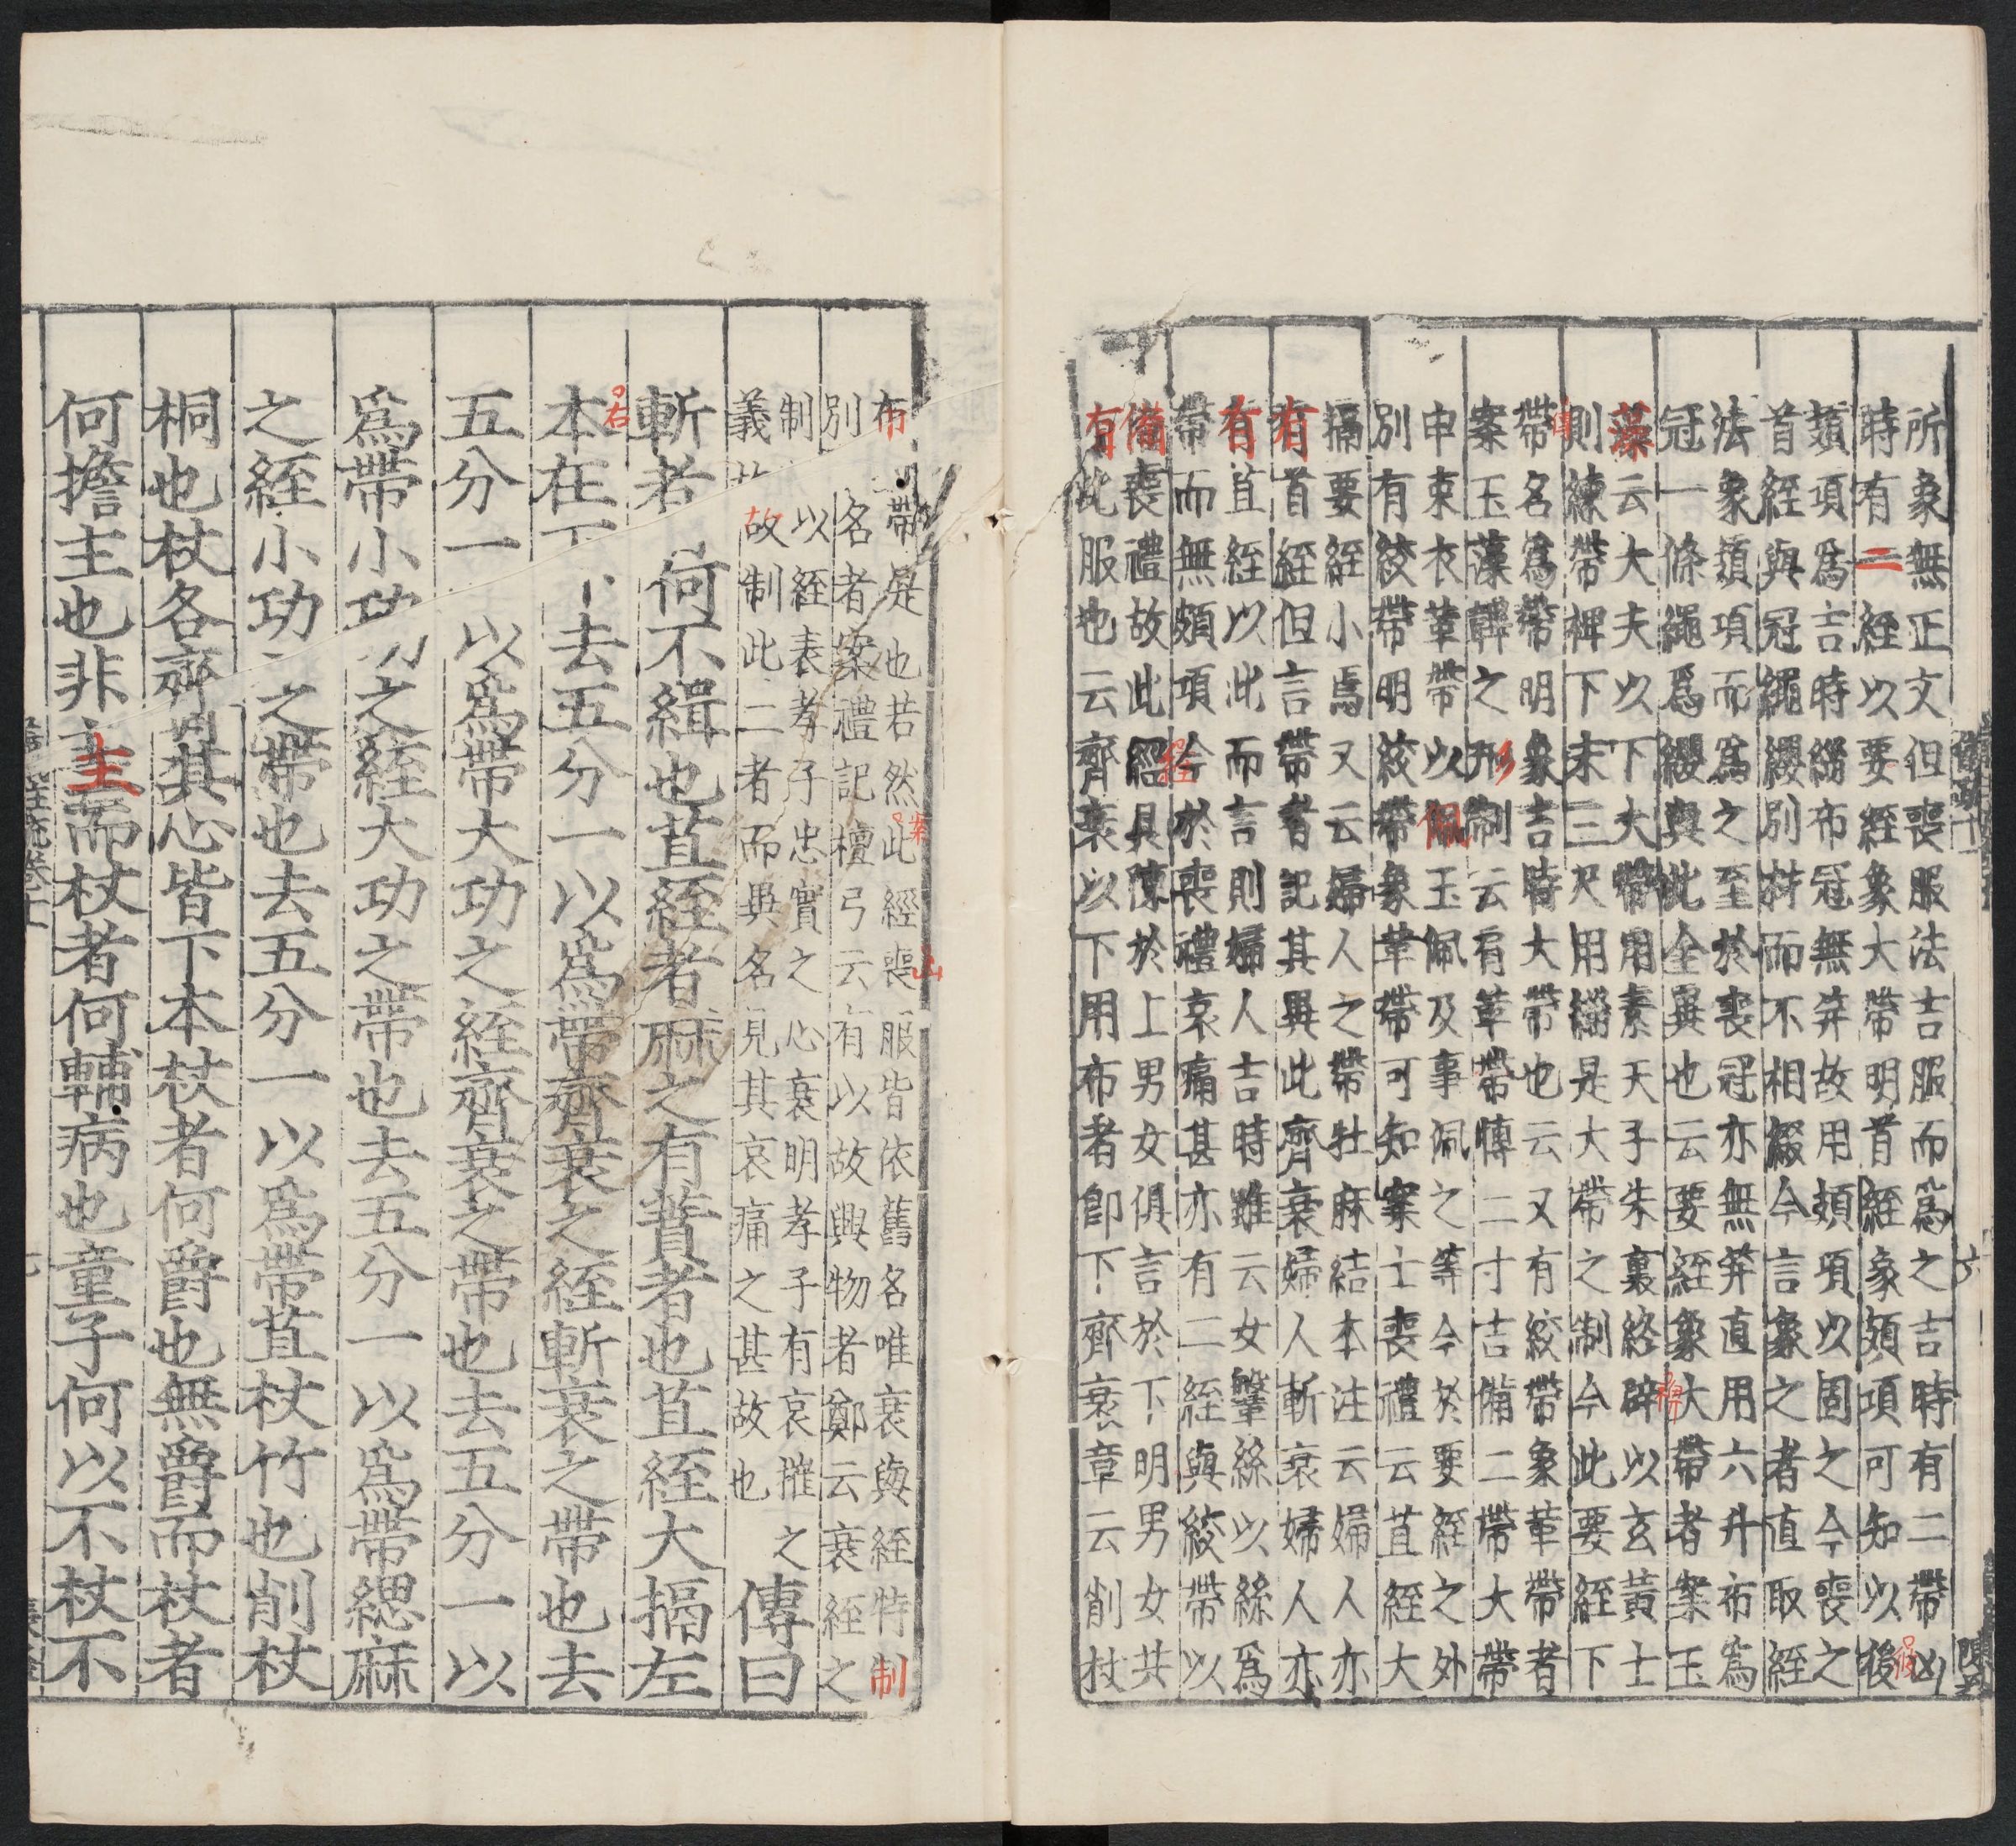 所象無正文但喪服法吉服而爲之吉時有二帶凶
時有二絰以要絰象大帶明首絰象頍項可知以後
頍項爲吉時緇布冠無笄故用頍項以固之今喪之
首絰與冠繩纓別材而不相綴今言象之者直取絰
法象頍項而爲之至於喪冠亦無笄直用六升布爲
冠一條繩爲纓與此全異也云要絰象大帶者案玉
藻云大夫以下大帶用素天子朱裏終辟以玄黃士
則練帶裨下末三尺用緇是大帶之制今此要絰下
帶名爲帶明象吉時大帶也云又有絞帶象革帶者
案玉藻韠之形制云有革帶博二寸吉備二帶大帶
申束衣革帶以佩玉佩及事佩之等今於要絰之外
別有絞帶明絞帶象革帶可知案士喪禮云苴絰大
搹要絰小焉又云婦人之帶牡麻結本注云婦人亦
有首絰但言帶者記其異此齊衰婦人斬衰婦人亦
有苴絰以此而言則婦人吉時雖云女鞶絲以絲爲
帶而無頍項今於喪禮哀痛甚亦有二絰與絞帶以
備喪禮故此絰具陳於上男女俱言於下明男女共
有此服也云齊衰以下用布者即下齊衰章云削杖
布帶是也若然此經喪服皆依舊名唯衰與絰特制
別名者案禮記檀弓云有以故興物者鄭云衰絰之
制以絰表孝子忠實之心衰明孝子有哀摧之
義故制此二者而異名見其哀痛之甚故也 傳曰
斬者何不緝也苴絰者麻之有蕡者也苴絰大搹左
本在下去五分一以爲帶齊衰之絰斬衰之帶也去
五分一以爲帶大功之絰齊衰之帶也去五分一以
爲帶小功之絰大功之帶也去五分一以爲帶緦麻
之絰小功之帶也去五分一以爲帶苴杖竹也削杖
桐也杖各齊其心皆下本杖者何爵也無爵而杖者
何擔主也非主而杖者何輔病也童子何以不杖不